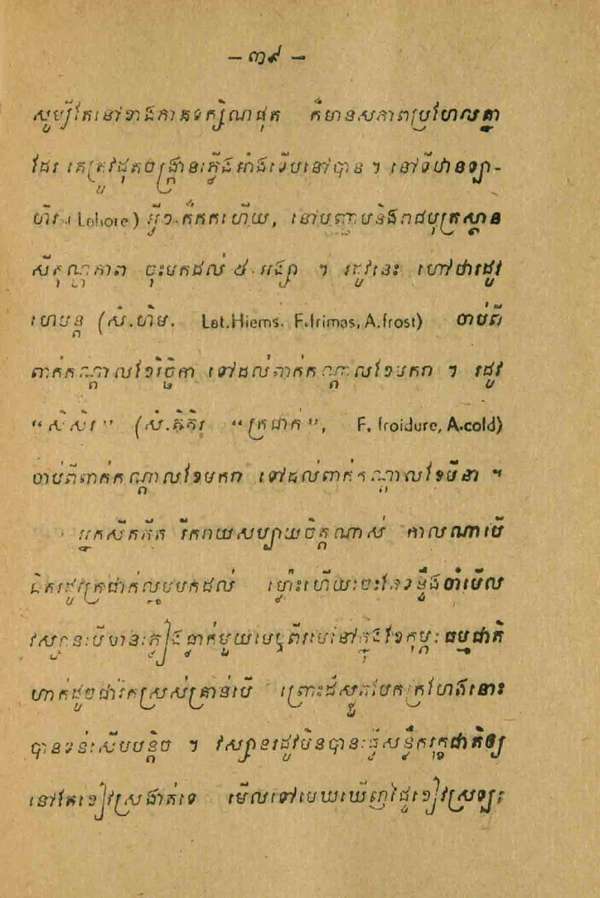 – ៣៩ –
សូម្បីតែនៅខាងភាគទក្សិណផុត ក៏មានសភាពប្រហែលគ្នា
ដែរ គេត្រូវដុតចង្ក្រានះភ្លើងអាំងទើបនៅបាន ។ នៅទីឋានឡា-
ហ័រ (Lahore) អ្វីៗ កំកកហើយ, នៅបញ្ជាបនិងរាជបុត្រស្ថាន
សីតុណ្ហភាព ចុះមកដល់ ៥ អង្សា ។ រដូវនេះ ហៅថារដូវ
ហេមន្ត (សំ.ហិម. Lat.Hiems. F.frimas, A.frost) ចាប់ពី
ពាក់កណ្ដាលខែវិច្ឆិកា ទៅដល់ពាក់កណ្ដាលខែមករា ។ រដូវ
“សិសិរ” (សំ.សិសិរ “ត្រជាក់”, F. froidure, A.cold)
ចាប់ពីពាក់កណ្ដាលខែមករា ទៅដល់ពាក់កណ្ដាលខែមីនា ។
អ្នកស្រីតគីត រីករាយសប្បាយចិត្តណាស់ កាលណាបើ
ជិតរដូវត្រជាក់ល្មមមកដល់ ម្ល៉ោះហើយះចះតែទន្ទឹងចាំមើល
វស្សានះបីមានះភ្លៀងធ្លាក់មួយមេឬពីរមេនៅក្នុងខែកុម្ភៈ ធម្មជាតិ
ហាក់ដូចជារីកស្រស់គ្រាន់បើ ព្រោះដីស្ងួតបែកក្រហែងនោះ
បានទន់ះសើមបន្តិច ។ វស្សានរដូវមិនបានះធ្វើសន្លឹករុក្ខជាតិឲ្យ
នៅតែខៀវស្រងាត់ទេ មើលទៅមេឃឃើញផ្ទៃខៀវស្រឡះ